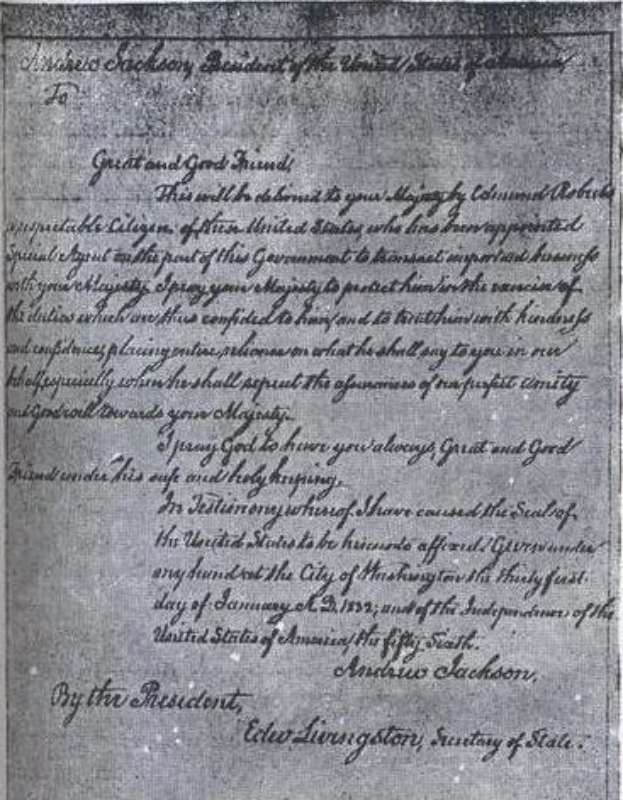 Andrew Jackson, President of the United States of America,
To
Great and Good Friend,
This will be delivered to your Majesty by Edmund Roberts
a respectable Citizen of these United States, who has been appointed
Special Agent on the part of this Government to transact important business
with your Majesty. I pray your Majesty to protect him in the exercise of
the duties which are thus confided to him, and to treat him with kindness
and confidence, placing entire reliance on what he shall say to you in our
behalf, especially when he shall repeat the assurances of our perfect amity
and Good will towards your Majesty.
I pray God to have you always, Great and Good
Friend under his safe and holy keeping.
In Testimony whereof I have caused the Seal of
the United States to be hereunto affixed. Given under
my hand at the City of Washington the thirty first
day of January A.D. 1832; and of the Independence of the
United States of America, the fifty Sixth.
Andrew Jackson.
By the President,
Edw Livingston, Secretary of State.